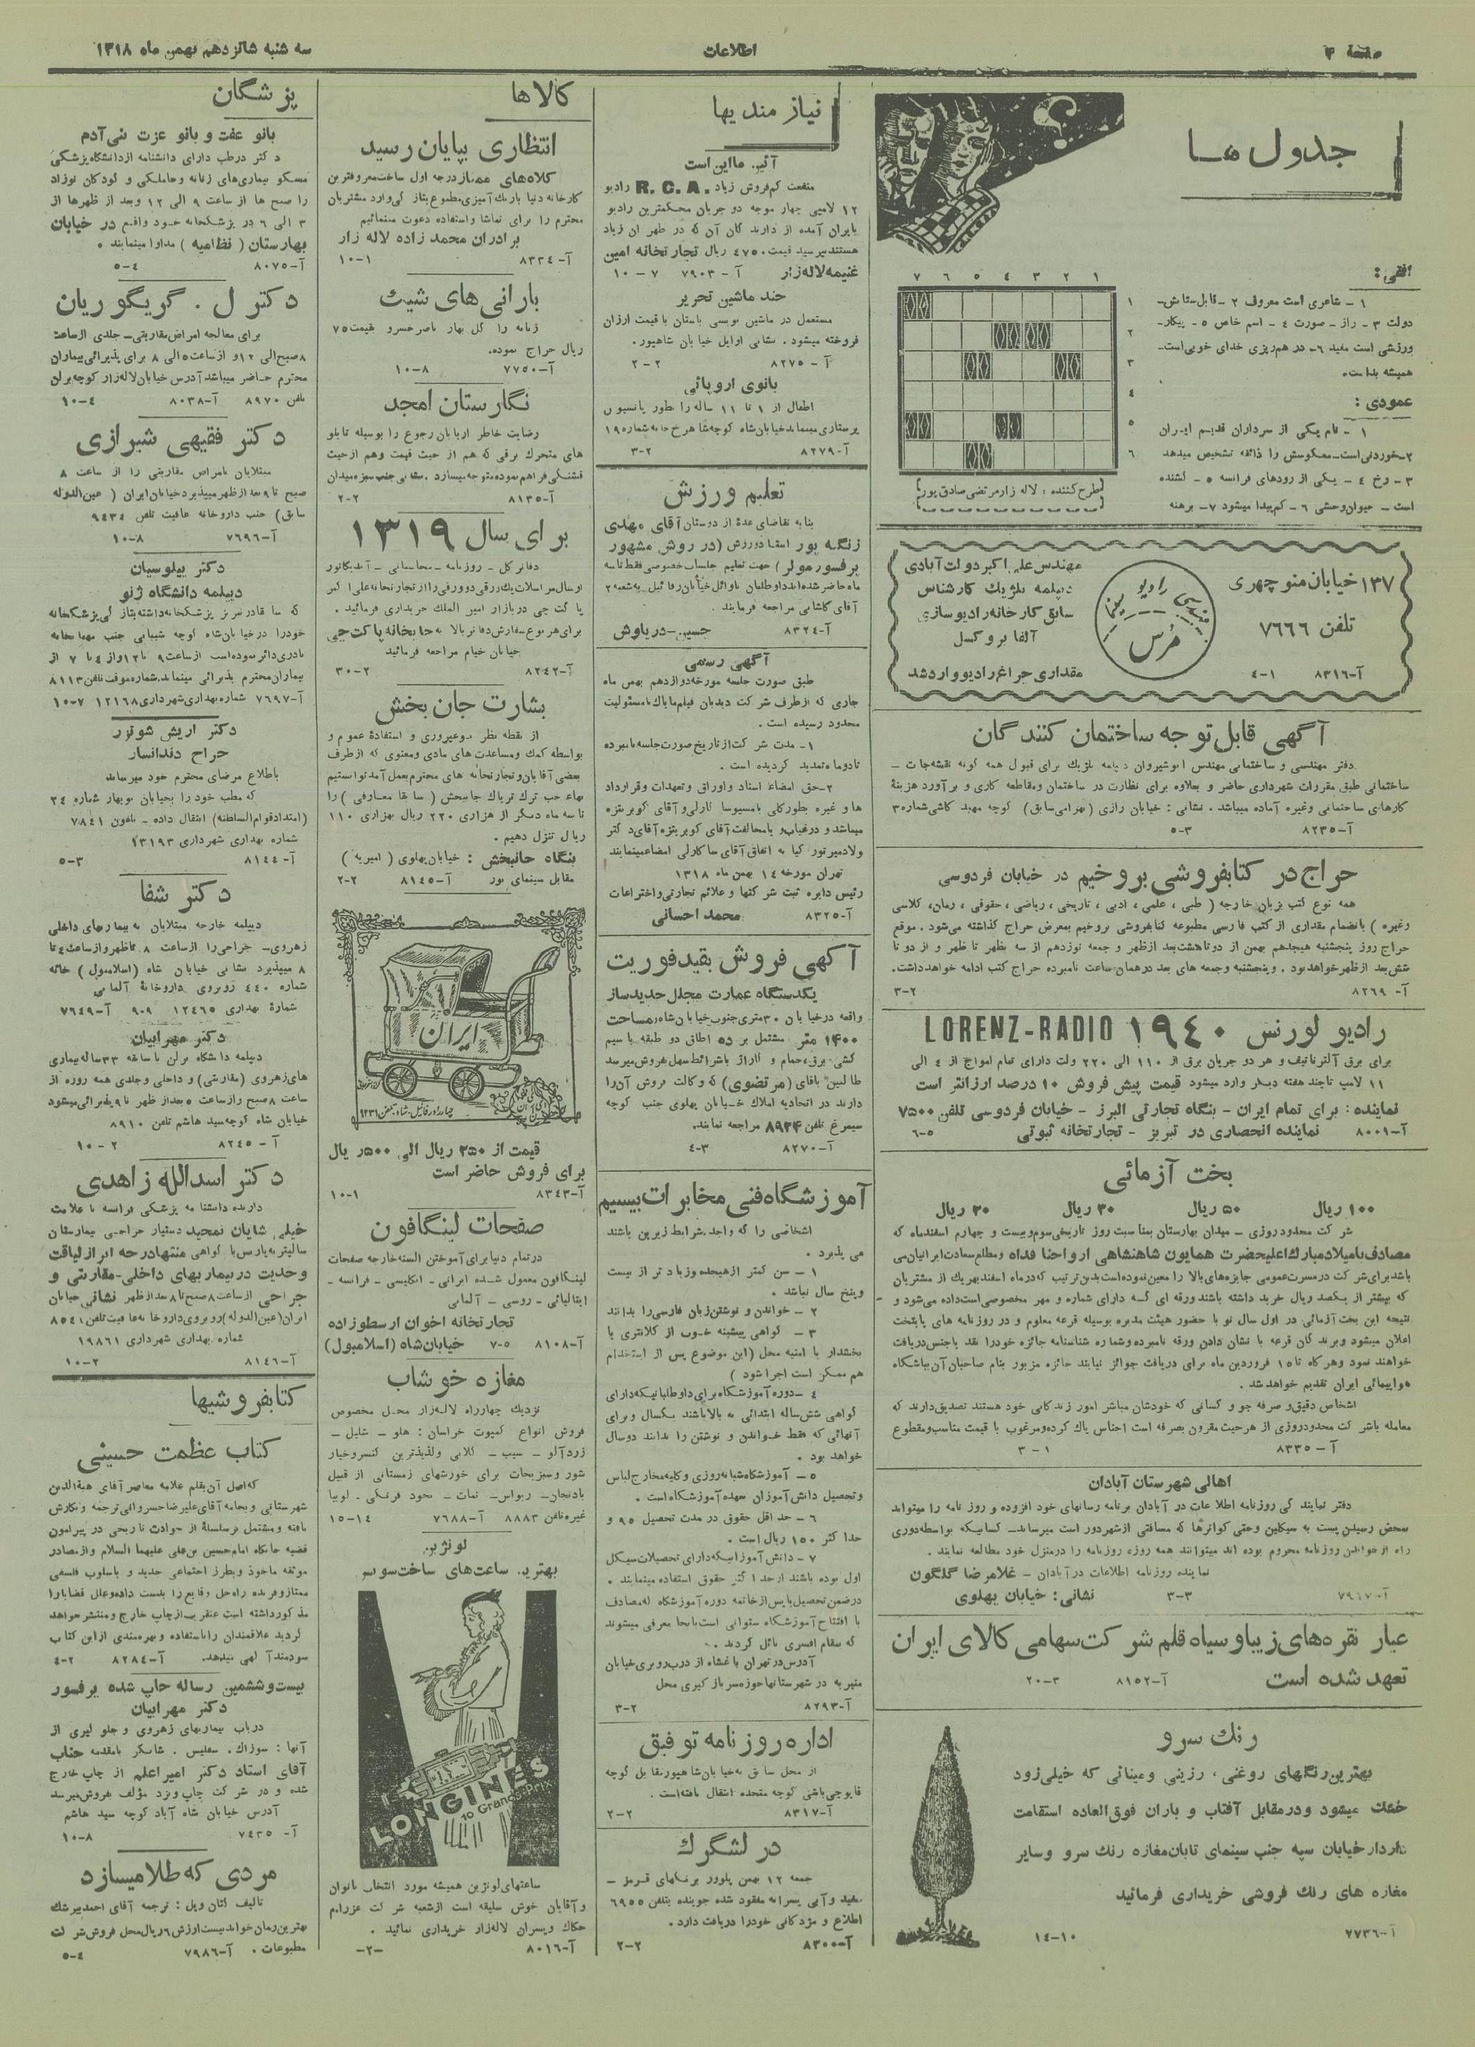 صفحه ۴
اطلاعات
سه شنبه شانزدهم بهمن ماه ۱۳۱۸
جدول ها
۷ ۶ ۵ ۴ ۳ ۲ ۱
۱
۲
۳
٤
۵
۶
طرح کننده : لاله زار مرتضی صادق پور
افقی :
۱ - شاعری است معروف ۲ - قابل ستایش -
دولت ۳ - راز - صورت ٤ - اسم خاص ۵ - پیکار -
ورزشی است مفید ۶ - در هم ریزی خدای خوبی است -
همیشه بد است.
عمودی :
۱ - نام یکی از سرداران قدیم ایران
۲-خوردنی است-معکوسش را ذائقه تشخیص میدهد
۳ - رخ ٤ - یکی از رودهای فرانسه ۵ - کشنده
است - حیوان وحشی ۶ - کم پیدا میشود ۷ - برهنه
۱۳۷ خیابان منوچهری
تلفن ۷۶۶۶
آ-۸۳۱۶
۴-۱
مهندسی رادیو سینما
مُرس
مهندس علی اکبر دولت آبادی
دیپلمه بلژیک کارشناس
سابق کارخانه رادیو سازی
آلفا بروکسل
مقداری چراغ رادیو وارد شد
آگهی قابل توجه ساختمان کنندگان
دفتر مهندسی و ساختمانی مهندس انوشیروان دیپلمه بلژیک برای قبول همه گونه نقشه جات -
ساختمانی طبق مقررات شهرداری حاضر و بعلاوه برای نظارت در ساختمان و مقاطعه کاری و برآورد هزینهٔ
کارهای ساختمانی وغیره آماده میباشد . نشانی : خیابان رازی (بهرامی سابق) کوچه مهبد کاشی شماره ۳
آ-۸۲۳۵
۵-۳
حراج در کتابفروشی بروخیم در خیابان فردوسی
همه نوع کتب بزبان خارجه ( طبی ، علمی ، ادبی ، تاریخی ، ریاضی ، حقوقی ، رمان، کلاسی
وغیره ) بانضمام مقداری از کتب فارسی مطبوعه کتابفروشی بروخیم بمعرض حراج گذاشته می شود . موقع
حراج روز پنجشنبه هیجدهم بهمن از دو تا هشت بعد ازظهر و جمعه نوزدهم از سه بظهر تا ظهر و از دو تا
شش بعد ازظهر خواهد بود . و پنجشنبه وجمعه های بعد در همان ساعت نامبرده حراج کتب ادامه خواهد داشت.
آ- ۸۲۶۹
۳-۲
رادیو لورنس ۱۹۴۰ LORENZ-RADIO
برای برق آلترناتیف و هر دو جریان برق از ۱۱۰ الی ۲۲۰ ولت دارای تمام امواج از ٤ الی
۱۱ لامپ تا چند هفته دیگر وارد میشود قیمت پیش فروش ۱۰ درصد ارزانتر است
نماینده : برای تمام ایران - بنگاه تجارتی البرز - خیابان فردوسی تلفن ۷۵۰۰
آ-۸۰۰۱ نماینده انحصاری در تبریز - تجارتخانه ثبوتی ۶-۵
بخت آزمائی
۱۰۰ ریال ۵۰ ریال ۳۰ ریال ۲۰ ریال
شرکت محدود روزی - میدان بهارستان بمناسبت روز تاریخی سوم وبیست و چهارم اسفندماه که
مصادف با میلاد مبارک اعلیحضرت همایون شاهنشاهی ارواحنا فداه ومطلع سعادت ایرانیان می
باشد برای شرکت در مسرت عمومی جایزه های بالا را معین نموده است بدین ترتیب که در ماه اسفند بهر یک از مشتریان
که بیشتر از یکصد ریال خرید داشته باشند ورقه ای که دارای شماره و مهر مخصوصی است داده می شود و
نتیجه این بخت آزمائی در اول سال نو با حضور هیئت مدیره بوسیله قرعه معلوم و در روزنامه های پایتخت
اعلان میشود وبرندگان قرعه با نشان دادن ورقه نامبرده وشماره شناسنامه جائزه خودرا نقد یا جنس دریافت
خواهند نمود وهرگاه تا ۱۵ فروردین ماه برای دریافت جوائز نیایند جائزه مزبور بنام صاحبان آن بباشگاه
هواپیمائی ایران تقدیم خواهد شد.
اشخاص دقیق و صرفه جو و کسانی که خودشان مباشر امور زندگانی خود هستند تصدیق دارند که
معامله باشرکت محدود روزی از هر حیث مقرون بصرفه است اجناس پاک کرده ومرغوب با قیمت مناسب ومقطوع
آ-۸۳۳۵
۳-۱
اهالی شهرستان آبادان
دفتر نمایندگی روزنامه اطلاعات در آبادان برنامه رسانهای خود افزوده و روزنامه را میتواند
بمحض رسیدن پست به سیکلین وحتی کواترها که مسافتی از شهر دور است میرساند- کسانیکه بواسطه دوری
راه از خواندن روزنامه محروم بوده اند میتوانند همه روزه روزنامه را در منزل خود مطالعه نمایند .
نماینده روزنامه اطلاعات در آبادان - غلامرضا گلگون
آ-۷۹۱۷
۳-۳ نشانی : خیابان پهلوی
عیار نقره های زیبا و سیاه قلم شرکت سهامی کالای ایران
تعهد شده است
آ-۸۱۵۲
۲۰-۳
رنگ سرو
بهترین رنگهای روغنی ، رزینی و مینائی که خیلی زود
خشک میشود و در مقابل آفتاب و باران فوق العاده استقامت
دارد از خیابان سپه جنب سینمای تابان مغازه رنگ سرو وسایر
مغازه های رنگ فروشی خریداری فرمائید
آ-۷۷۳۶
۱۴-۱۰
نیازمندیها
آئین ما این است
منفعت کم فروش زیاد R.C.A. رادیو
۱۲ لامپی چهار موجه دو جریان محکمترین رادیو
بایران آمده از دارندگان آن که در طهران زیاد
هستند بپرسید قیمت ٤۷۵۰ ریال تجارتخانه امین
غنیمه لاله زار آ-۷۹۰۳ ۱۰-۷
چند ماشین تحریر
مستعمل در ماشین نویسی باستان با قیمت ارزان
فروخته میشود . نشانی اوایل خیابان شاهپور.
آ-۸۲۷۵
۲-۲
بانوی اروپائی
اطفال از ۱ تا ۱۱ ساله را بطور پانسیون
پرستاری مینماید خیابان شاه کوچه شاهرخ خانه شماره ۱۹
آ-۸۲۷۹
۳-۲
تعلیم ورزش
بنا به تقاضای عدهٔ از دوستان آقای مهدی
زنگه پور استاد ورزش (در روش مشهور
پرفسور مولر) جهت تعلیم جلسات خصوصی فقط تا سه
ماه حاضر شده اند داوطلبان باوائل خیابان رفائیل به شعبه ۲
آقای کاشانی مراجعه فرمایند
آ-۸۳۲٤
حسین-درباوش
آگهی رسمی
طبق صورت جلسه مورخه دوازدهم بهمن ماه
جاری که از طرف شرکت دیدبان فیلم ما باک با مسئولیت
محدود رسیده است .
۱- مدت شرکت از تاریخ صورت جلسه نامبرده
تا دو ماه تمدید گردیده است .
۲-حق امضاء اسناد واوراق وتعهدات وقرارداد
ها و غیره بطور کلی با مسیو ساکارلی و آقای کوبریتزه
میباشد و در غیاب و یا مخالفت آقای کوبریتزه آقای دکتر
ولادیمر تورکیا به اتفاق آقای ساکارلی امضا مینمایند
تهران مورخه ۱٤ بهمن ماه ۱۳۱۸
رئیس دایره ثبت شرکتها و علائم تجارتی و اختراعات
آ-۸۳۲۵
محمد احسانی
آگهی فروش بقید فوریت
یکدستگاه عمارت مجلل جدیدساز
واقعه در خیابان ۳۰ متری جنوب خیابان شاه بمساحت
۱۴۰۰ متر مشتمل بر ده اطاق دو طبقه با سیم
کشی برق، حمام و گاراژ باشرائط سهل بفروش میرسد
طالبین بآقای (مرتضوی) که وکالت فروش آن را
دارند در اتحادیه املاک خیابان پهلوی جنب کوچه
سیمرغ تلفن ۸۹۲۴ مراجعه نمایند.
آ-۸۲۷۰
۴-۳
آموزشگاه فنی مخابرات بیسیم
اشخاصی را که واجد شرایط زیرین باشند
می پذیرد .
۱ - سن کمتر از هیجده و زیادتر از بیست
وپنج سال نباشد .
۲ - خواندن و نوشتن زبان فارسی را بدانند
۳ - گواهی پیشینه خوب از کلانتری یا
بخشدار یا امنیه محل (این موضوع پس از استخدام
هم ممکن است اجرا شود )
٤ - دوره آموزشگاه برای داوطلبانیکه دارای
گواهی شش ساله ابتدائی به بالا باشند یکسال و برای
آنهائی که فقط خواندن و نوشتن را بدانند دو سال
خواهد بود .
۵ - آموزشگاه شبانه روزی و کلیه مخارج لباس
وتحصیل دانش آموزان بعهده آموزشگاه است .
۶ - حداقل حقوق در مدت تحصیل ۹۵ و
حداکثر ۱۵۰ ریال است .
۷ - دانش آموزانیکه دارای تحصیلات سیکل
اول بوده باشند از حداکثر حقوق استفاده مینمایند .
در ضمن تحصیل یا پس از خاتمه دوره آموزشگاه به مصادف
با افتتاح آموزشگاه ستوانی است بآنجا معرفی میشوند
که بمقام افسری نائل گردند .
آدرس در تهران باغشاه از درب روبروی خیابان
منیریه در شهرستانها حوزه سربازگیری محل
آ-۸۲۹۳
۳-۲
اداره روزنامه توفیق
از محل سابق به خیابان شاهپور مقابل کوچه
قاپوچی باشی کوچه متحده انتقال یافته است.
آ-۸۳۱۷
۲-۲
در لشگرک
جمعه ۱۲ بهمن پلوور برنگهای قرمز -
سفید و آبی پسرانه مفقود شده جوینده بتلفن ۶۹۵۵
اطلاع و مژدگانی خودرا دریافت دارد .
آ-۸۳۰۰
۲-۲
کالاها
انتظاری بپایان رسید
کلاه های ممتاز درجه اول ساخت معروفترین
کارخانه دنیا با رنگ آمیزی مطبوع بتازگی وارد مشتریان
محترم را برای تماشا و استفاده دعوت مینمائیم
برادران محمد زاده لاله زار
آ-۸۳۳٤
۱۰-۱
بارانی های شیک
زنانه را گل بهار ناصر خسرو بقیمت ۷۵
ریال حراج نموده.
آ-۷۷۵۰
۱۰-۸
نگارستان امجد
رضایت خاطر اربابان رجوع را بوسیله تابلو
های متحرک برقی که هم از حیث قیمت وهم ازحیث
قشنگی فراهم نموده متوجه میسازد. نشانی جنب سبزه میدان
آ-۸۱۳۵
۲-۲
برای سال ۱۳۱۹
دفاتر کل - روزنامه - محاسباتی - اندیکاتور
ارسال مراسلات یک ورقی دو ورقی را از تجارتخانه علی اکبر
پاکتچی در بازار امیر الملک خریداری فرمائید .
برای هر نوع سفارش دفاتر بالا به چاپخانه پاکت چی
خیابان خیام مراجعه فرمائید
آ-۸۲٤۲
۳۰-۲
بشارت جان بخش
از نقطه نظر نوعپروری و استفادهٔ عموم و
بواسطه کمک ومساعدت های مادی ومعنوی که از طرف
بعضی آقایان و تجارتخانه های محترم بعمل آمد توانستیم
بهاء حب ترک تریاک جانبخش ( سابقا معارفی ) را
تا سه ماه دیگر از هزاری ۲۲۰ ریال بهزاری ۱۱۰
ریال تنزل دهیم .
بنگاه جانبخش : خیابان پهلوی ( امیریه )
مقابل سینمای نور آ-۸۱٤۵ ۲-۲
ایران
قیمت از ۲۵۰ ریال الی ۵۰۰ ریال
برای فروش حاضر است
آ-۸۳٤۳
۱۰-۱
صفحات لینگافون
در تمام دنیا برای آموختن السنه خارجه صفحات
لینگافون معمول شده ایرانی - انگلیسی - فرانسه -
ایتالیائی - روسی - آلمانی
تجارتخانه اخوان ارسطوزاده
آ-۸۱۰۸ ۷-۵ خیابان شاه (اسلامبول)
مغازه خوشاب
نزدیک چهارراه لاله زار محل مخصوص
فروش انواع کمپوت خراسان : هلو - شلیل -
زردآلو - سیب - گلابی ولذیذترین کنسرو خیار
شور وسبزیجات برای خورشهای زمستانی از قبیل
بادنجان- ریواس- نمات- نخود فرنگی . لوبیا
غیره تلفن ۸۸۸۳ آ-۷۶۸۸ ۱۵-۱٤
لونژین
بهترین ساعت های ساخت سویس
LONGINES
10 Grands Prix
ساعتهای لونژین همیشه مورد انتخاب بانوان
و آقایان خوش سلیقه است از شعبه شرکت عزرا م
حکاک وپسران لاله زار خریداری نمائید .
آ-۸۰۱۶
-۲-
پزشگان
بانو عفت و بانو عزت بنی آدم
دکتر در طب دارای دانشنامه از دانشگاه پزشگی
مسکو بیماری های زنانه وحاملگی و کودکان نوزاد
را صبح ها از ساعت ۹ الی ۱۲ وبعد از ظهرها از
۳ الی ۶ در پزشگخانه خود واقع در خیابان
بهارستان ( نظامیه ) مداوا مینمایند .
آ-۸۰۷۵
۵-٤
دکتر ل . گریگوریان
برای معالجه امراض مقاربتی - جلدی ازساعت
۸صبح الی ۱۲و ازساعت ۵ الی ۸ برای پذیرائی بیماران
محترم حاضر میباشد آدرس خیابان لاله زار کوچه برلن
تلفن ۸۹۷۰ آ-۸۰۳۸ ۱۰-٤
دکتر فقیهی شیرازی
مبتلایان بامراض مقاربتی را از ساعت ۸
صبح تا ۹ بعد از ظهر میپذیرد خیابان ایران ( عین الدوله
سابق) جنب داروخانه عافیت تلفن ۹٤۳٤
آ-۷۶۹۶
۱۰-۸
دکتر بیلوسیان
دیپلمه دانشگاه ژنو
که سابقا در تبریز پزشگخانه داشته بتازگی پزشگخانه
خودرا در خیابان شاه کوچه شیبانی جنب مهمانخانه
نادری دائر نموده است از ساعت ۹ تا ۱۲ و از ٤ تا ۷ از
بیماران محترم پذیرائی مینماید.شماره موقت تلفن ۸۱۱۳
آ-۷۶۹۷ شماره بهداری شهرداری ۱۲۱۶۸ ۱۰-۷
دکتر اریش شونزر
جراح دندانساز
باطلاع مرضای محترم خود میرساند
که مطب خود را بخیابان نوبهار شماره ۲٤
(امتداد قوام السلطنه) انتقال داده - تلفون ۷۸٤۱
شماره بهداری شهرداری ۱۳۱۹۳
آ-۸۱٤٤
۵-۳
دکتر شفا
دیپلمه خارجه مبتلایان به بیماریهای داخلی
زهروی- جراحی را از ساعت ۸ تا ظهر و از ساعت ٤ تا
۸ میپذیرد نشانی خیابان شاه (اسلامبول) خانه
شماره ٤٤۰ روبروی داروخانهٔ آلمانی
شمارهٔ بهداری ۱۲٤۶۵ ۹-۹ آ-۷۶٤۹
دکتر مهرابیان
دیپلمه دانشگاه برلن با سابقه ۳۳ساله بیماری
های زهروی (مقاربتی) و داخلی وجلدی همه روزه از
ساعت ۸صبح وازساعت ۵بعداز ظهر تا ۹ پذیرائی میشود
خیابان شاه کوچه سید هاشم تلفن ۸۹۱۰
آ-۸۲٤۵
۱۰-۲
دکتر اسدالله زاهدی
دارنده دانشنامه پزشکی فرانسه با علامت
خیلی شایان تمجید دستیار جراحی بیمارستان
سالپتریه پاریس با گواهی منتها درجه ابراز لیاقت
وجدیت در بیماریهای داخلی-مقاربتی و
جراحی ازساعت ۸صبح تا ۸ بعد از ظهر نشانی خیابان
ایران (عین الدوله) روبروی داروخانه عافیت تلفن ۸۵٤۱
شماره بهداری شهرداری ۱۹۸۶۱
آ-۸۱٤۶
۱۰-۲
کتابفروشیها
کتاب عظمت حسینی
که اصل آن بقلم علامه معاصر آقای هبة الدین
شهرستانی و بخامه آقای علیرضا خسروانی ترجمه و نگارش
یافته و مشتمل بر سلسلهٔ از حوادث تاریخی در پیرامون
قضیه جانکاه امام حسین بن علی علیهما السلام و از مصادر
موثقه ماخوذ و بطرز اجتماعی جدید و باسلوب فلسفی
ممتاز و فرنده راه حل وقایع را بدست داده و علل قضایا را
مذکور داشته است عنقریب از چاپ خارج و منتشر خواهد
گردید علاقمندان را باستفاده و بهره مندی از این کتاب
سودمند آگهی میدهد. آ-۸۲۸٤ ٤-۲
بیست وششمین رساله چاپ شده پرفسور
دکتر مهرابیان
در باب بیماریهای زهروی و جلوگیری از
آنها : سوزاک . سفلیس . شانکر با مقدمه جناب
آقای استاد دکتر امیر اعلم از چاپ خارج
شده و در شرکت چاپ ونزد مؤلف بفروش میرسد
آدرس خیابان شاه آباد کوچه سید هاشم
آ-۷٤۳۵
۱۰-۸
مردی که طلا میسازد
تالیف لئان ویل : ترجمه آقای احمد بیرشک
بهترین رمان خواندنیست ارزش ۶ ریال محل فروش شرکت
مطبوعات . آ-۷۹۸۶ ۵-٤